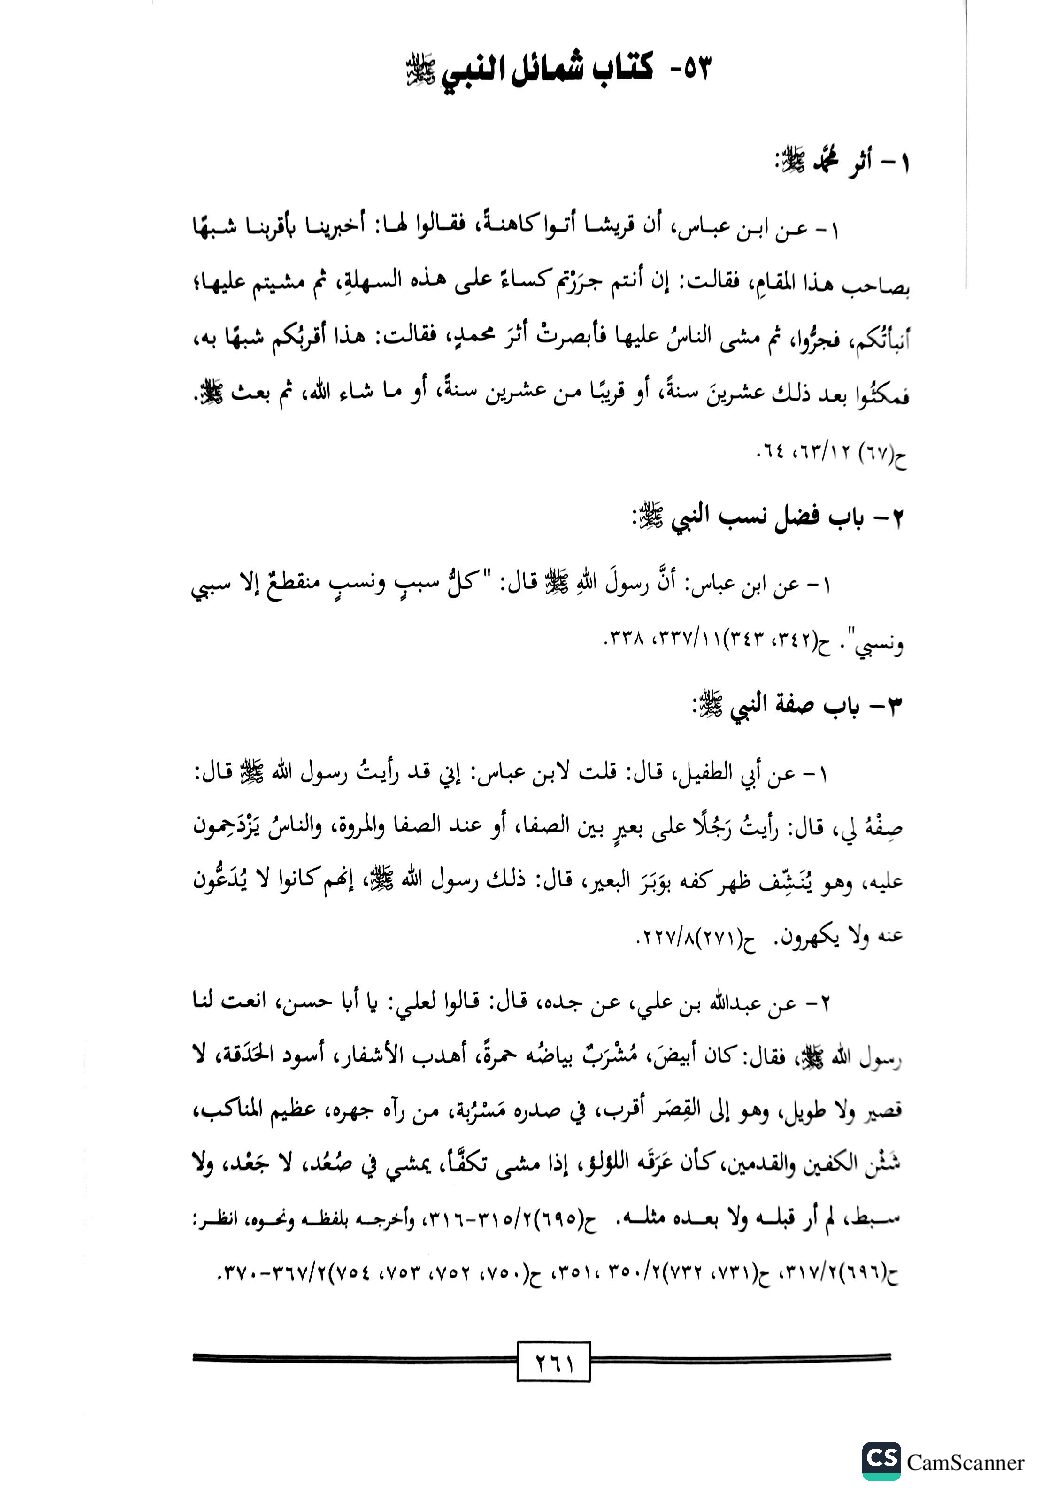 ٥٣- كتاب شمائل النبي ﷺ
١- أثر محمَّد ﷺ:
١- عـن ابـن عبـاس، أن قريشـا أتـوا كاهنـةً، فقـالوا لها: أخبرينـا بأقربنـا شبهًا
بصاحب هذا المقامِ، فقالت: إن أنتم جرَرْتم كساءً على هذه السهلةِ، ثم مشيتم عليها؛
أنبأتُكم، فجرُّوا، ثم مشى الناسُ عليها فأبصرتْ أثرَ محمدٍ، فقالت: هذا أقربُكم شبهًا به،
فمكثُوا بعد ذلك عشرينَ سنةً، أو قريبًا من عشرين سنةً، أو ما شاء الله، ثم بعث ﷺ.
ح(٦٧) ٦٣/١٢، ٦٤.
٢- باب فضل نسب النبي ﷺ:
١- عن ابن عباس: أنَّ رسولَ اللهِ ﷺ قال: "كلُّ سببٍ ونسبٍ منقطعٌ إلا سببي
ونسبي". ح(٣٤٢، ٣٤٣)٣٣٧/١١، ٣٣٨.
٣- باب صفة النبي ﷺ:
١- عن أبي الطفيل، قال: قلت لابن عباس: إني قد رأيتُ رسول الله ﷺ قال:
صِفْهُ لي، قال: رأيتُ رَجُلًا على بعيرٍ بين الصفا، أو عند الصفا والمروة، والناسُ يَزْدَحِمون
عليه، وهو يُنَشِّف ظهر كفه بوَبَرَ البعير، قال: ذلك رسول الله ﷺ، إنهم كانوا لا يُدَعُّون
عنه ولا يكهرون. ح(٢٧١)٢٢٧/٨.
٢- عن عبدالله بن علي، عن جده، قال: قالوا لعلي: يا أبا حسن، انعت لنا
رسول الله ﷺ، فقال: كان أبيضَ، مُشْرَبٌ بياضُه حمرةً، أهدب الأشفار، أسود الحَدَقة، لا
قصير ولا طويل، وهو إلى القِصَر أقرب، في صدره مَسْرُبة، من رآه جهره، عظيم المناكب،
شَثْن الكفين والقدمين، كأن عَرَقَه اللؤلؤ، إذا مشى تكفَّأ، يمشي في صُعُد، لا جَعْد، ولا
سبط، لم أر قبله ولا بعده مثله. ح(٦٩٥)٣١٥/٢-٣١٦، وأخرجه بلفظه ونحوه، انظر:
ح(٦٩٦)٣١٧/٢، ح(٧٣١، ٧٣٢)٣٥٠/٢ ،٣٥١، ح(٧٥٠، ٧٥٢، ٧٥٣، ٧٥٤)٣٦٧/٢-٣٧٠.
٢٦١
CS CamScanner